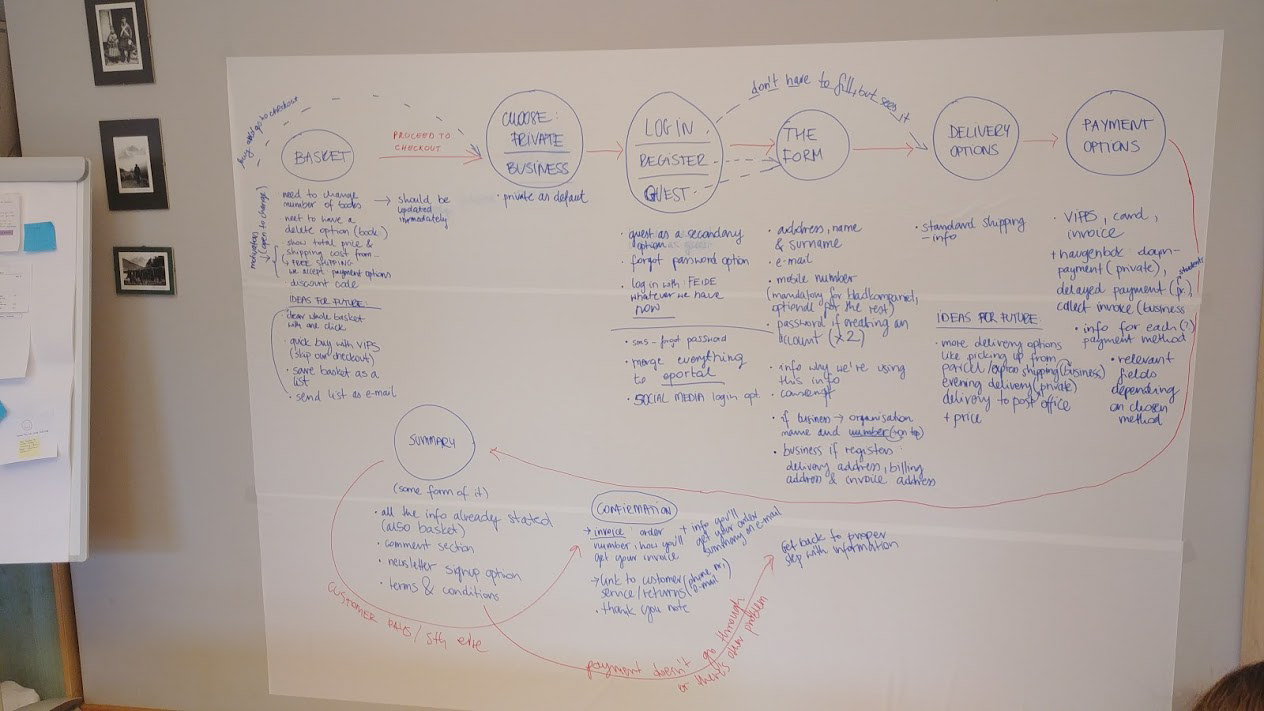 go to checkout
BASKET
PROCEED TO
CHECKOUT
CHOOSE:
PRIVATE
BUSINESS
LOG IN
REGISTER
GUEST
don't have to fill, but sees it
THE
FORM
DELIVERY
OPTIONS
PAYMENT
OPTIONS
motivation
(open to change)
need to change
number of books
→ should be
updated
immediately
need to have a
delete option (book)
• show total price &
shipping cost from -
↳ FREE SHIPPING
we accept payment options
• discount code
IDEAS FOR FUTURE:
• clear whole basket
with one click
• quick buy with VIPS
(skip our checkout)
• save basket as a
list
• send list as e-mail
• private as default
• guest as a secondary
option
• forgot password option
• log in with FEIDE
whatever we have
now
• sms - forgot password
• merge everything
to eportal
• SOCIAL MEDIA login opt.
• address, name
& surname
• e-mail
• mobile number
(mandatory for
optional for the rest)
• password if creating an
account (x2)
• info why we're using
this info
• consent
• if business → organisation
name and number (on top)
• business if registers:
delivery address, billing
address & invoice address
• standard shipping
- info
IDEAS FOR FUTURE:
• more delivery options
like picking up from
parcel/ shipping (business)
evening delivery (private)
delivery to post office
+ price
• VIPS, card,
invoice
+ haugenbok down-
payment (private),
students
delayed payment (pr.)
collect invoice (business
• info for each (?)
payment method
• relevant
fields
depending
on chosen
method
SUMMARY
(some form of it)
• all the info already stated
(also basket)
• comment section
• newsletter signup option
• terms & conditions
CUSTOMER PAYS / 5th else
CONFIRMATION
→ invoice: order
number, how you'll
get your invoice
+ info you'll
get your order
summary on e-mail
→ link to customer (phone nr,
service/returns e-mail)
• thank you note
payment doesn't go through
or there's other problem
Get back to proper
step with information